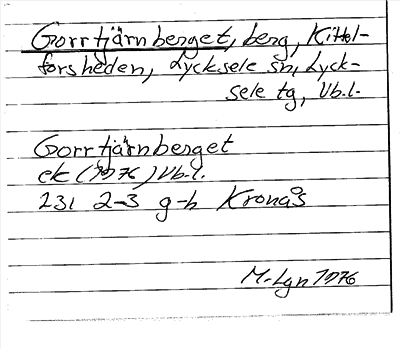 Gorrtjärnberget, berg, Kittel-
forsheden, Lycksele sn, Lyck-
sele tg, Vb.l.
Gorrtjärnberget
ek (1976) Vb.l.
231 2-3 g-h Kronås
M. Lgn 1976